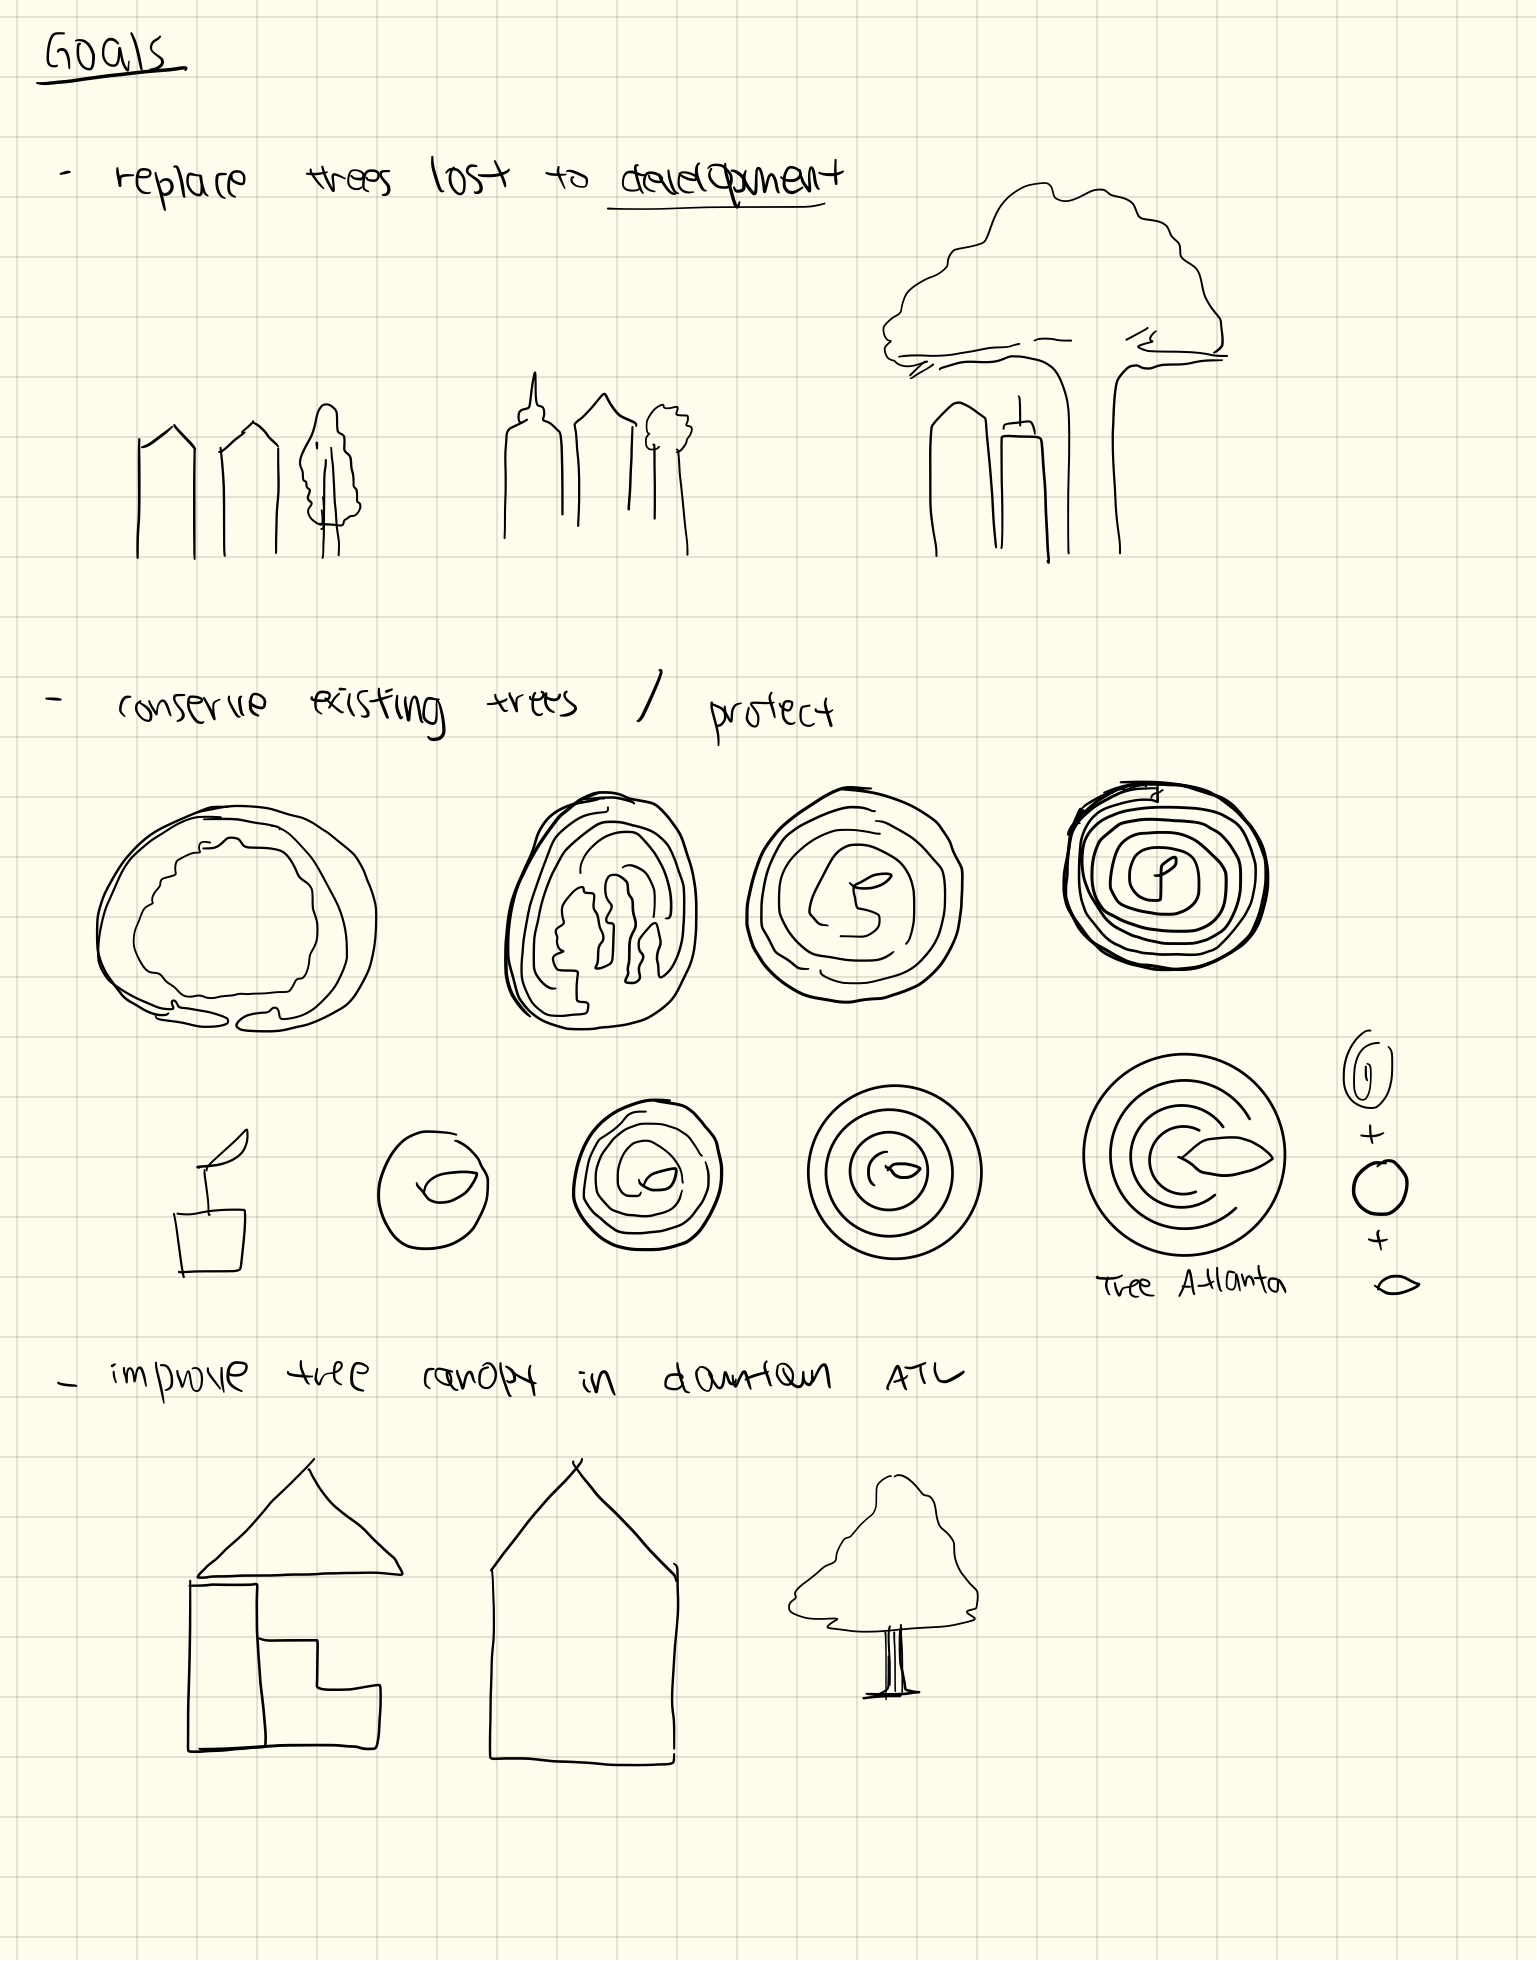 Goals
- replace trees lost to development
- conserve existing trees / protect
+
+
Tree Atlanta
- improve tree canopy in downtown ATL